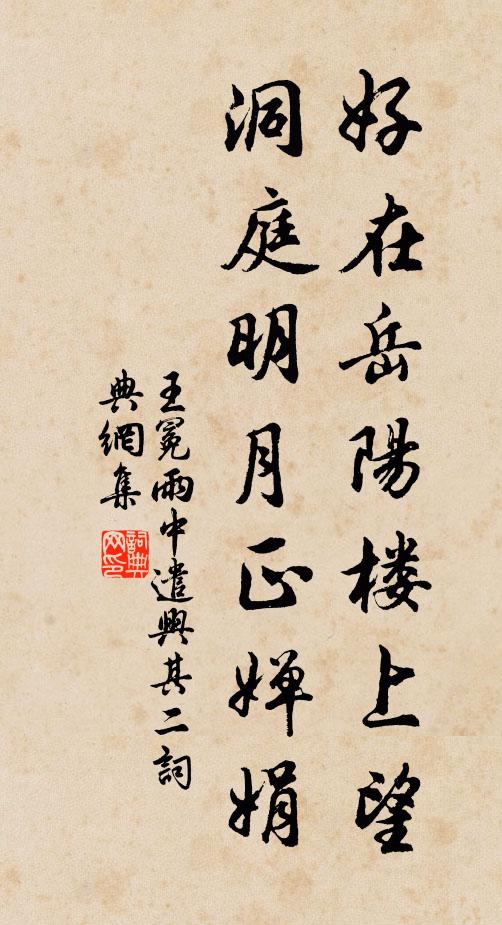 好在岳陽楼上望
洞庭明月正嬋娟
王冕雨中遣興其二詞
典網集
詞典网印